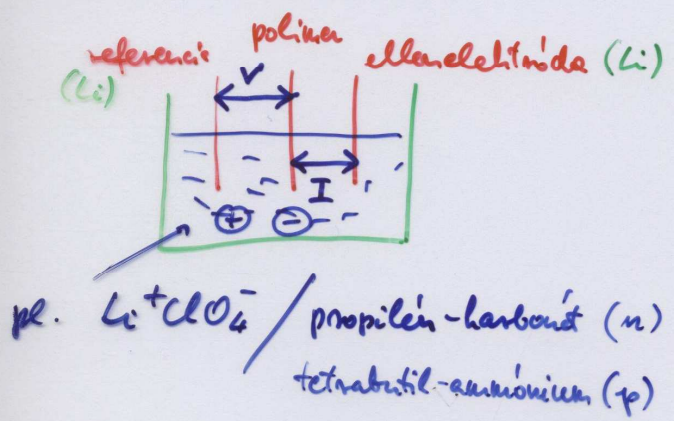 polimer
referencia ellenelektróda (Li)
(Li)
V
I
+ -
pl. Li⁺ClO₄⁻ / propilén-karbonát (n)
tetrabutil-ammónium (p)